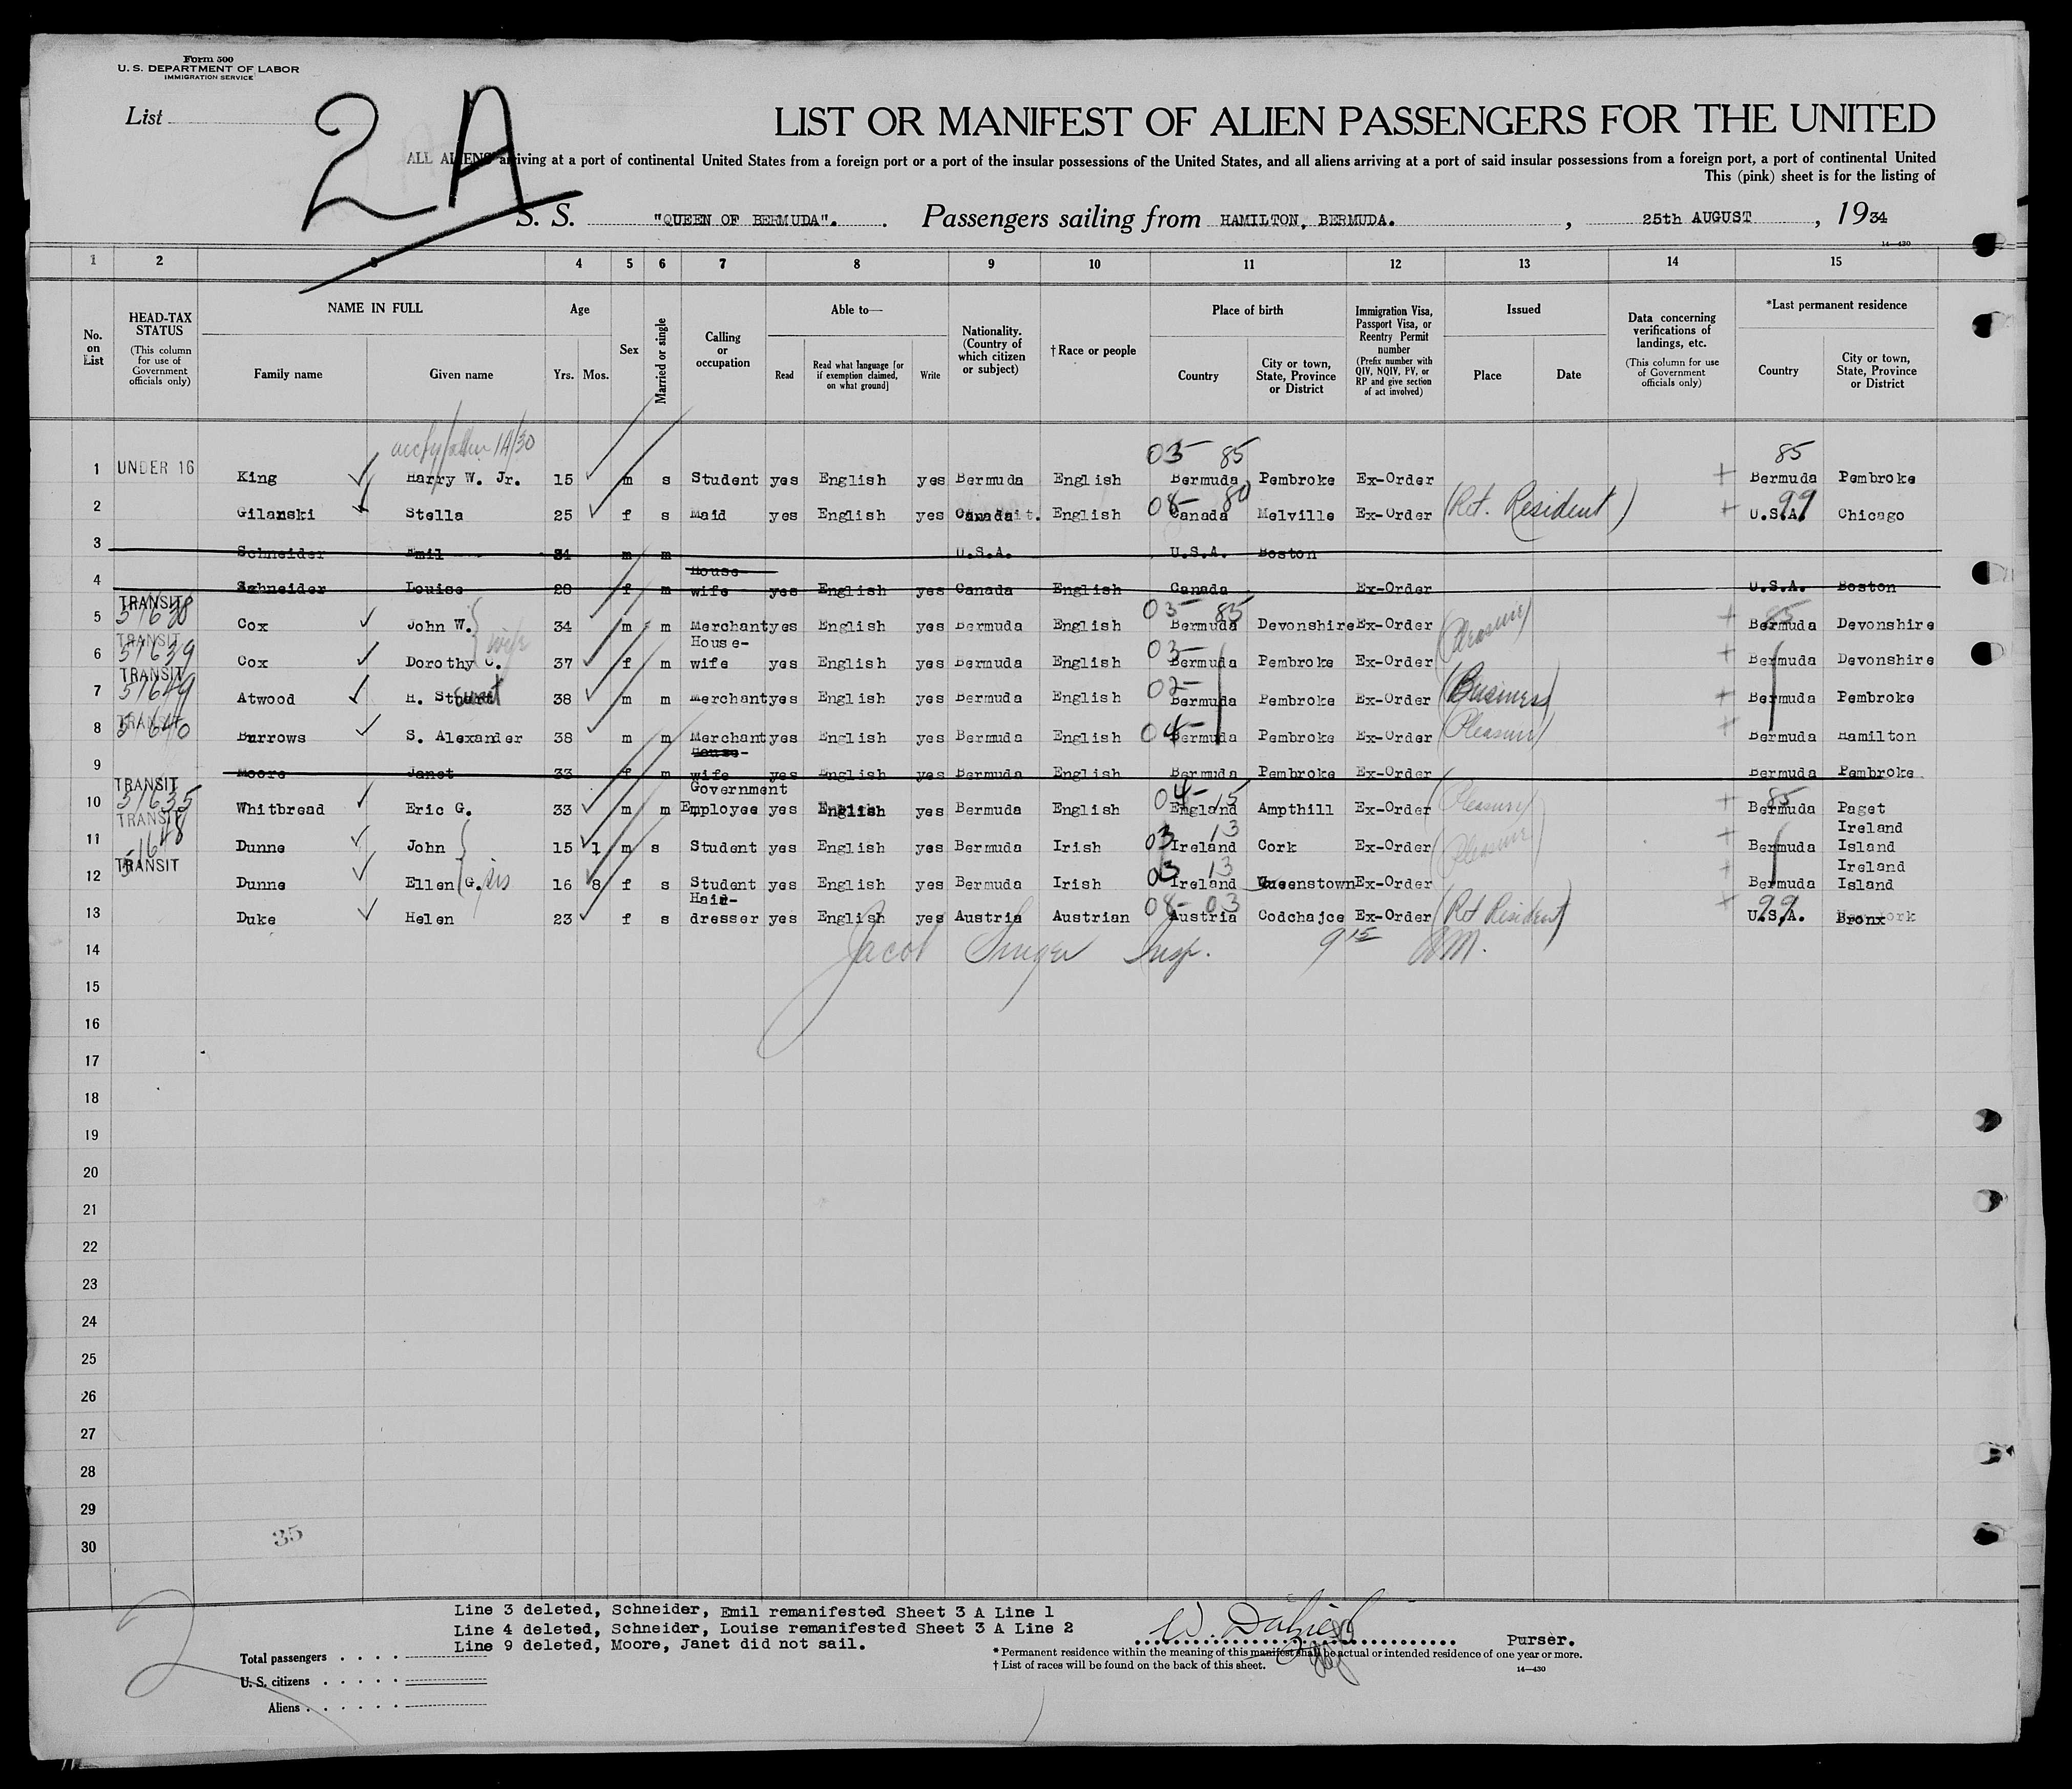 Form 500
U. S. DEPARTMENT OF LABOR
IMMIGRATION SERVICE
List
2 A
LIST OR MANIFEST OF ALIEN PASSENGERS FOR THE UNITED
ALL ALIENS arriving at a port of continental United States from a foreign port or a port of the insular possessions of the United States, and all aliens arriving at a port of said insular possessions from a foreign port, a port of continental United
This (pink) sheet is for the listing of
S. S. "QUEEN OF BERMUDA". Passengers sailing from HAMILTON, BERMUDA. , 25th AUGUST , 1934
14—430
1 2 3 4 5 6 7 8 9 10 11 12 13 14 15
No. on List
HEAD-TAX STATUS (This column for use of Government officials only)
NAME IN FULL
Family name Given name
Age
Yrs. Mos.
Sex
Married or single
Calling or occupation
Able to—
Read Read what language [or if exemption claimed, on what ground] Write
Nationality. (Country of which citizen or subject)
†Race or people
Place of birth
Country City or town, State, Province or District
Immigration Visa, Passport Visa, or Reentry Permit number (Prefix number with QIV, NQIV, PV, or RP and give section of act involved)
Issued
Place Date
Data concerning verifications of landings, etc. (This column for use of Government officials only)
*Last permanent residence
Country City or town, State, Province or District
03 85 85
1 UNDER 16 King Harry W. Jr. 15 m s Student yes English yes Bermuda English Bermuda Pembroke Ex-Order Bermuda Pembroke
08 80 99
2 Gilanski Stella 25 f s Maid yes English yes Canada English Canada Melville Ex-Order (Ret. Resident) U.S.A. Chicago
3 Schneider Emil 34 m m U.S.A. U.S.A. Boston
4 Schneider Louise 28 f m House-wife yes English yes Canada English Canada Ex-Order U.S.A. Boston
TRANSIT 03 85 85
5 51638 Cox John W. 34 m m Merchant yes English yes Bermuda English Bermuda Devonshire Ex-Order (Pleasure) Bermuda Devonshire
TRANSIT wife 03
6 51639 Cox Dorothy C. 37 f m House-wife yes English yes Bermuda English Bermuda Pembroke Ex-Order Bermuda Devonshire
TRANSIT 02
7 51649 Atwood H. Stuart 38 m m Merchant yes English yes Bermuda English Bermuda Pembroke Ex-Order (Business) Bermuda Pembroke
TRANSIT 04
8 51640 Burrows S. Alexander 38 m m Merchant yes English yes Bermuda English Bermuda Pembroke Ex-Order (Pleasure) Bermuda Hamilton
9 Moore Janet 33 f m House-wife yes English yes Bermuda English Bermuda Pembroke Ex-Order Bermuda Pembroke
TRANSIT 04 15 85
10 51635 Whitbread Eric G. 33 m m Government Employee yes English yes Bermuda English England Ampthill Ex-Order (Pleasure) Bermuda Paget
TRANSIT 03 13
11 51648 Dunne John 15 1 m s Student yes English yes Bermuda Irish Ireland Cork Ex-Order (Pleasure) Bermuda Ireland Island
TRANSIT 03 13
12 Dunne Ellen G. sis 16 8 f s Student yes English yes Bermuda Irish Ireland Queenstown Ex-Order Bermuda Ireland Island
08 03 99
13 Duke Helen 23 f s Hair-dresser yes English yes Austria Austrian Austria Codchajce Ex-Order (Ret Resident) U.S.A. Bronx
14 Jacob Singer Insp. 9 15 AM.
15
16
17
18
19
20
21
22
23
24
25
26
27
28
29
30
35
2
Line 3 deleted, Schneider, Emil remanifested Sheet 3 A Line 1
Line 4 deleted, Schneider, Louise remanifested Sheet 3 A Line 2
Line 9 deleted, Moore, Janet did not sail.
Purser.
Total passengers
U. S. citizens
Aliens
* Permanent residence within the meaning of this manifest shall be actual or intended residence of one year or more.
† List of races will be found on the back of this sheet.
14—430